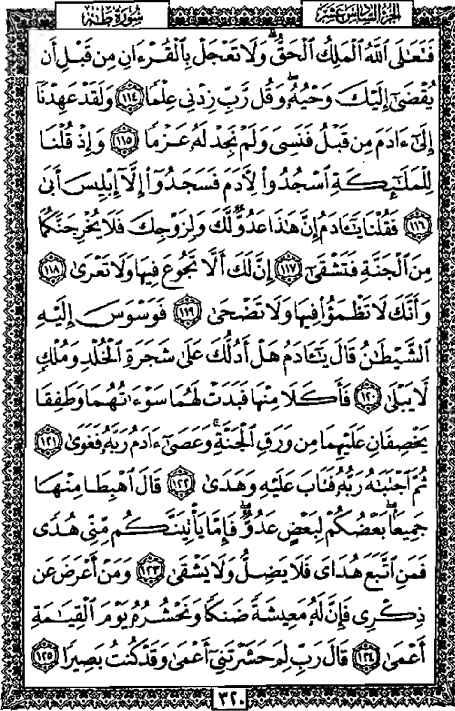 الجزء السادس عشر سورة طه
فَتَعَـٰلَى ٱللَّهُ ٱلْمَلِكُ ٱلْحَقُّ ۗ وَلَا تَعْجَلْ بِٱلْقُرْءَانِ مِن قَبْلِ أَن
يُقْضَىٰٓ إِلَيْكَ وَحْيُهُۥ ۖ وَقُل رَّبِّ زِدْنِى عِلْمًا ١١٤ وَلَقَدْ عَهِدْنَآ
إِلَىٰٓ ءَادَمَ مِن قَبْلُ فَنَسِىَ وَلَمْ نَجِدْ لَهُۥ عَزْمًا ١١٥ وَإِذْ قُلْنَا
لِلْمَلَـٰٓئِكَةِ ٱسْجُدُوا۟ لِـَٔادَمَ فَسَجَدُوٓا۟ إِلَّآ إِبْلِيسَ أَبَىٰ
١١٦ فَقُلْنَا يَـٰٓـَٔادَمُ إِنَّ هَـٰذَا عَدُوٌّ لَّكَ وَلِزَوْجِكَ فَلَا يُخْرِجَنَّكُمَا
مِنَ ٱلْجَنَّةِ فَتَشْقَىٰٓ ١١٧ إِنَّ لَكَ أَلَّا تَجُوعَ فِيهَا وَلَا تَعْرَىٰ ١١٨
وَأَنَّكَ لَا تَظْمَؤُا۟ فِيهَا وَلَا تَضْحَىٰ ١١٩ فَوَسْوَسَ إِلَيْهِ
ٱلشَّيْطَـٰنُ قَالَ يَـٰٓـَٔادَمُ هَلْ أَدُلُّكَ عَلَىٰ شَجَرَةِ ٱلْخُلْدِ وَمُلْكٍ
لَّا يَبْلَىٰ ١٢٠ فَأَكَلَا مِنْهَا فَبَدَتْ لَهُمَا سَوْءَٰتُهُمَا وَطَفِقَا
يَخْصِفَانِ عَلَيْهِمَا مِن وَرَقِ ٱلْجَنَّةِ ۚ وَعَصَىٰٓ ءَادَمُ رَبَّهُۥ فَغَوَىٰ ١٢١
ثُمَّ ٱجْتَبَـٰهُ رَبُّهُۥ فَتَابَ عَلَيْهِ وَهَدَىٰ ١٢٢ قَالَ ٱهْبِطَا مِنْهَا
جَمِيعًۢا ۖ بَعْضُكُمْ لِبَعْضٍ عَدُوٌّ ۖ فَإِمَّا يَأْتِيَنَّكُم مِّنِّى هُدًى
فَمَنِ ٱتَّبَعَ هُدَاىَ فَلَا يَضِلُّ وَلَا يَشْقَىٰ ١٢٣ وَمَنْ أَعْرَضَ عَن
ذِكْرِى فَإِنَّ لَهُۥ مَعِيشَةً ضَنكًا وَنَحْشُرُهُۥ يَوْمَ ٱلْقِيَـٰمَةِ
أَعْمَىٰ ١٢٤ قَالَ رَبِّ لِمَ حَشَرْتَنِىٓ أَعْمَىٰ وَقَدْ كُنتُ بَصِيرًا ١٢٥
٣٢٠